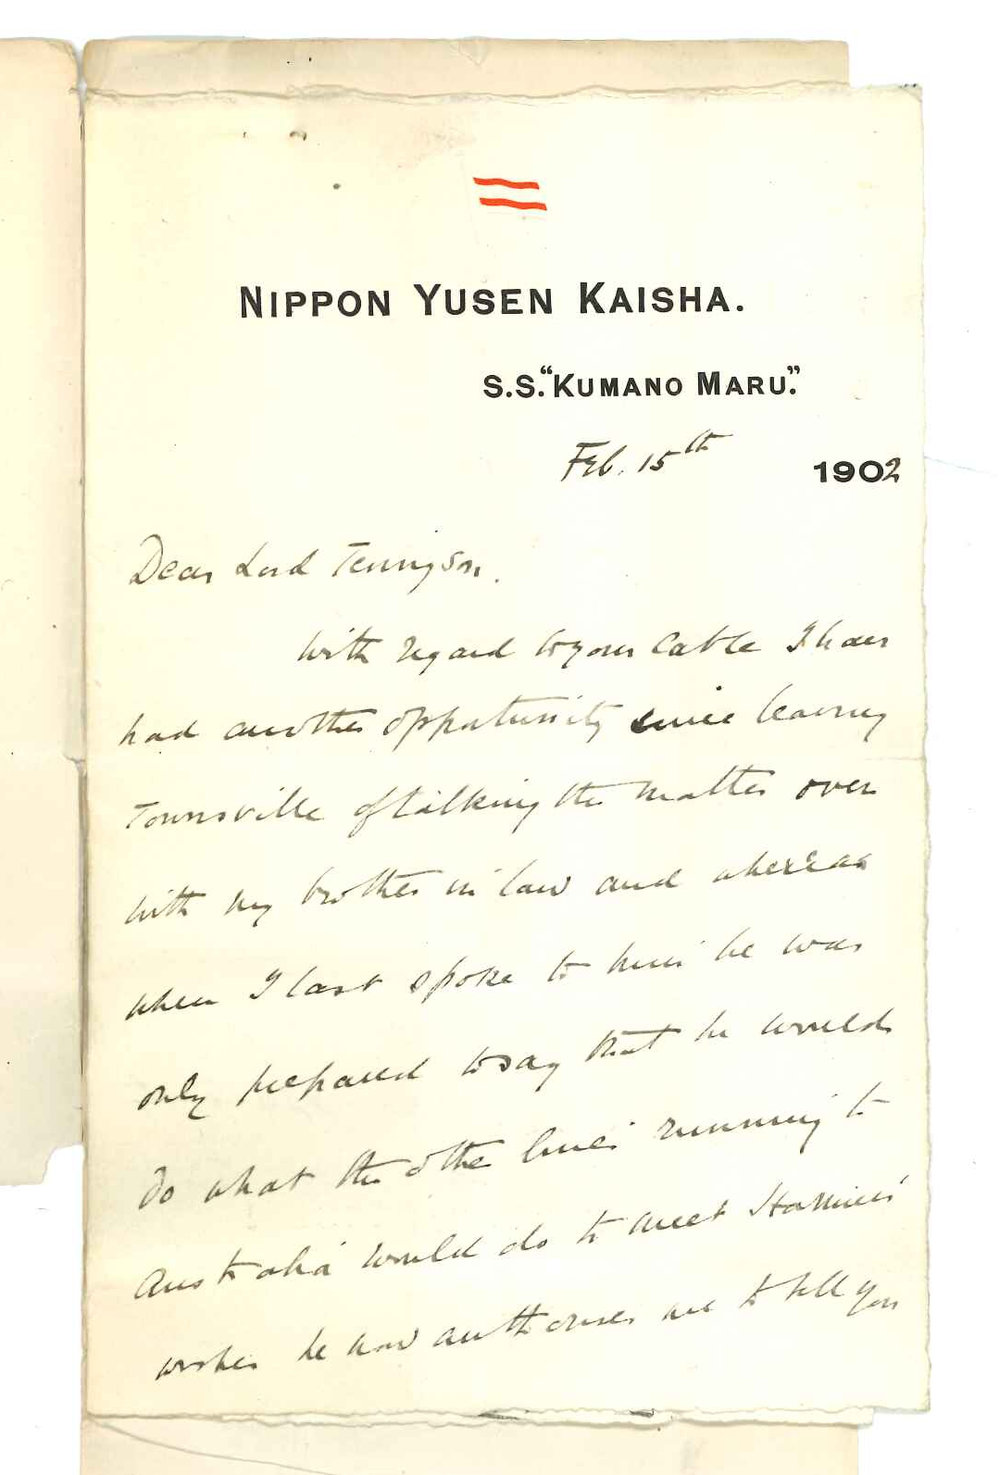 NIPPON YUSEN KAISHA.
S.S. "KUMANO MARU".
Feb. 15th 1902
Dear Lord Tennyson.
With regard to your cable I have
had another opportunity since leaving
Townsville of talking the matter over
with my brother in law and whereas
when I last spoke to him he was
only prepared to say that he would
do what the other lines running to
Australia would do to meet
wishes he now authorises me to tell you